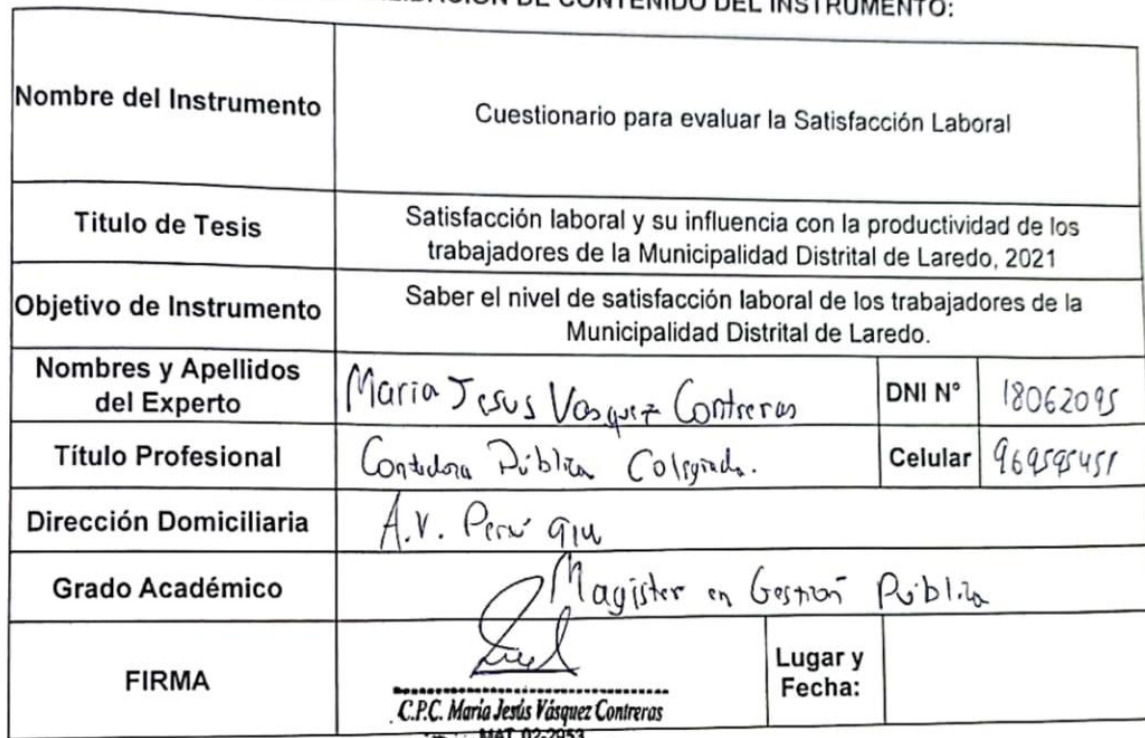 DE CONTENIDO DEL INSTRUMENTO:
Nombre del Instrumento
Cuestionario para evaluar la Satisfacción Laboral
Titulo de Tesis
Satisfacción laboral y su influencia con la productividad de los
trabajadores de la Municipalidad Distrital de Laredo, 2021
Objetivo de Instrumento
Saber el nivel de satisfacción laboral de los trabajadores de la
Municipalidad Distrital de Laredo.
Nombres y Apellidos
del Experto
Maria Jesus Vasquez Contreras
DNI N°
18062095
Título Profesional
Contadora Pública Colegiada.
Celular
969595451
Dirección Domiciliaria
A.V. Perú
Grado Académico
Magister en Gestión Pública
FIRMA
C.P.C. María Jesús Vásquez Contreras
MAT 02-2953
Lugar y
Fecha: